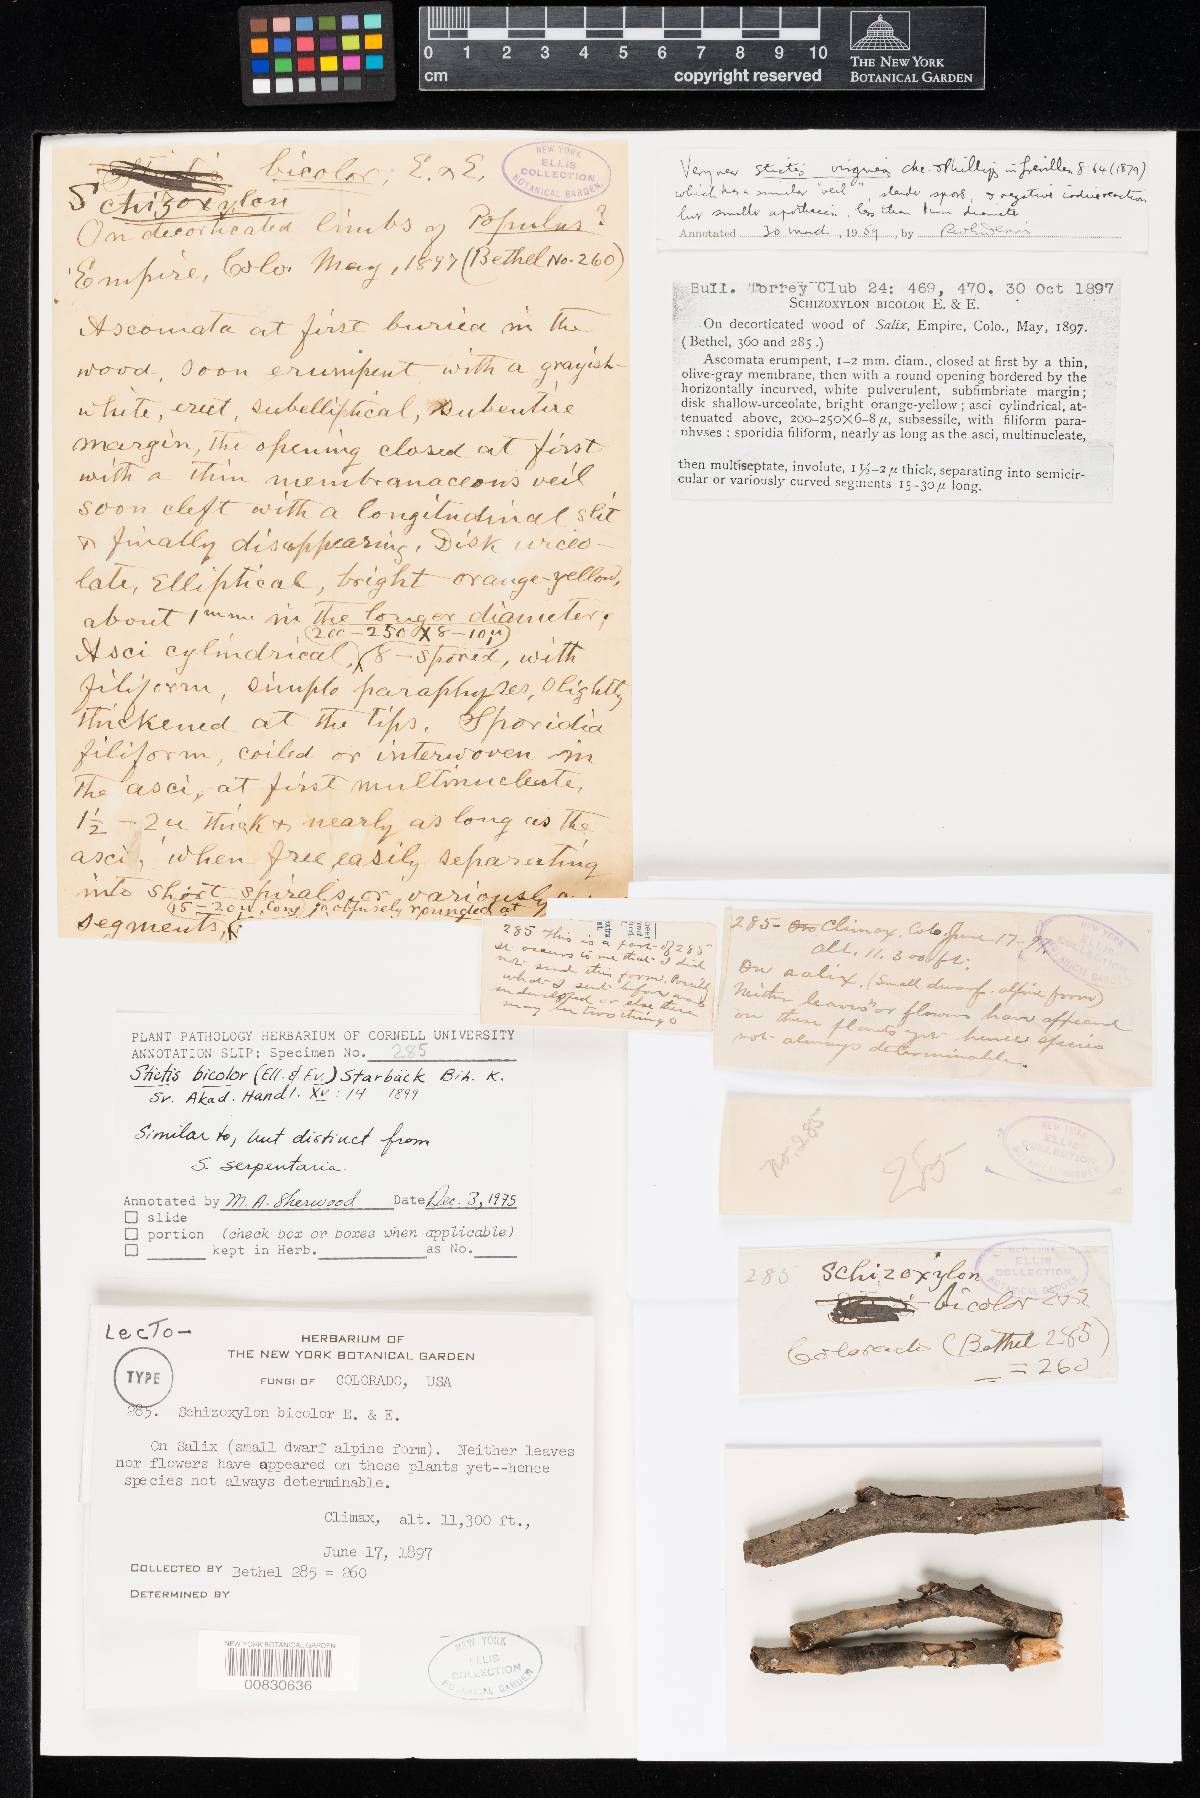 0 1 2 3 4 5 6 7 8 9 10
cm
copyright reserved
THE NEW YORK
BOTANICAL GARDEN
bicolor, E. & E.
Schizoxylon
On decorticated limbs of Populus?
Empire, Colo. May, 1897 (Bethel No. 260)
Ascomata at first buried in the
wood, soon erumpent with a grayish-
white, erect, subelliptical, subentire
margin, the opening closed at first
with a thin membranaceous veil
soon cleft with a longitudinal slit
& finally disappearing. Disk urceo-
late, elliptical, bright orange-yellow,
about 1 mm. in the longer diameter.
(200-250 X 8-10µ)
Asci cylindrical, 8-spored, with
filiform, simple paraphyses, slightly
thickened at the tips. Sporidia
filiform, coiled or interwoven in
the asci, at first multinucleate,
1½-2µ thick & nearly as long as the
asci, when free easily separating
into short spirals or variously
15-20µ long, obtusely rounded at
segments,
NEW YORK
ELLIS
COLLECTION
BOTANICAL GARDEN.
Very near Stictis virginea Cke. & Phillips in Grevillea 8:64 (1879)
which has a similar "veil", slender spores, & negative iodine reaction
but smaller apothecia, less than 1 mm diameter
Annotated 30 March, 1959, by
Bull. Torrey Club 24: 469, 470. 30 Oct 1897
SCHIZOXYLON BICOLOR E. & E.
On decorticated wood of Salix, Empire, Colo., May, 1897.
(Bethel, 360 and 285.)
Ascomata erumpent, 1-2 mm. diam., closed at first by a thin,
olive-gray membrane, then with a round opening bordered by the
horizontally incurved, white pulverulent, subfimbriate margin;
disk shallow-urceolate, bright orange-yellow; asci cylindrical, at-
tenuated above, 200-250×6-8 µ, subsessile, with filiform para-
physes: sporidia filiform, nearly as long as the asci, multinucleate,
then multiseptate, involute, 1½-2 µ thick, separating into semicir-
cular or variously curved segments 15-30 µ long.
285 This is a part of 285
It occurs to me that I did
not send this form. Possibly
what I sent before was
undeveloped or else there
may be two things
285- Climax, Colo. June 17-97.
alt. 11,300 ft.
On Salix. (Small dwarf alpine form)
Neither leaves or flowers have appeared
on these plants yet hence species
not always determinable.
PLANT PATHOLOGY HERBARIUM OF CORNELL UNIVERSITY
ANNOTATION SLIP: Specimen No. 285
Stictis bicolor (Ell. & Ev.) Starbäck Bih. K.
Sv. Akad. Handl. XV: 14 1899
Similar to, but distinct from
S. serpentaria.
Annotated by M. A. Sherwood Date Dec. 3, 1975
slide
portion (check box or boxes when applicable)
kept in Herb. as No.
No. 285
285
NEW YORK
ELLIS
COLLECTION
BOTANICAL GARDEN
285 Schizoxylon
bicolor E&E
Colorado (Bethel 285)
= 260
Lecto-
TYPE
HERBARIUM OF
THE NEW YORK BOTANICAL GARDEN
FUNGI OF COLORADO, USA
285. Schizoxylon bicolor E. & E.
On Salix (small dwarf alpine form). Neither leaves
nor flowers have appeared on these plants yet--hence
species not always determinable.
Climax, alt. 11,300 ft.,
June 17, 1897
COLLECTED BY Bethel 285 = 260
DETERMINED BY
NEW YORK BOTANICAL GARDEN
00830636
NEW YORK
ELLIS
COLLECTION
BOTANICAL GARDEN